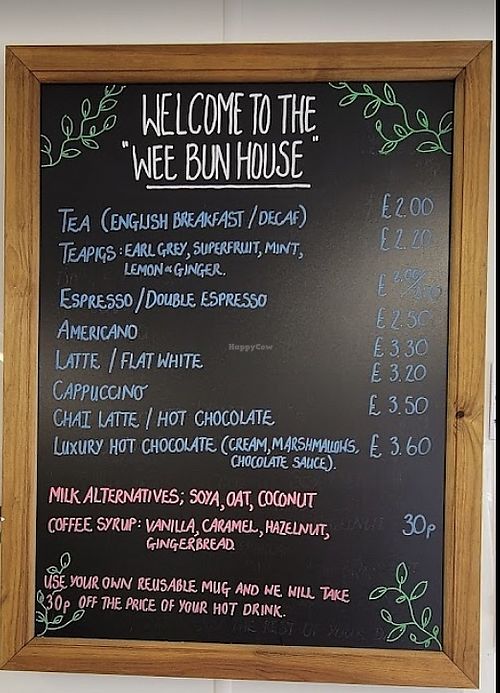 WELCOME TO THE
"WEE BUN HOUSE"
TEA (ENGLISH BREAKFAST / DECAF) £2.00
TEAPIGS: EARL GREY, SUPERFRUIT, MINT, £2.20
LEMON & GINGER.
ESPRESSO / DOUBLE ESPRESSO £2.00/
AMERICANO £2.50
LATTE / FLAT WHITE £3.30
CAPPUCCINO £3.20
CHAI LATTE / HOT CHOCOLATE £3.50
LUXURY HOT CHOCOLATE (CREAM, MARSHMALLOWS, £3.60
CHOCOLATE SAUCE).
HappyCow
MILK ALTERNATIVES; SOYA, OAT, COCONUT
COFFEE SYRUP: VANILLA, CARAMEL, HAZELNUT, 30p
GINGERBREAD.
USE YOUR OWN REUSABLE MUG AND WE WILL TAKE
30p OFF THE PRICE OF YOUR HOT DRINK.